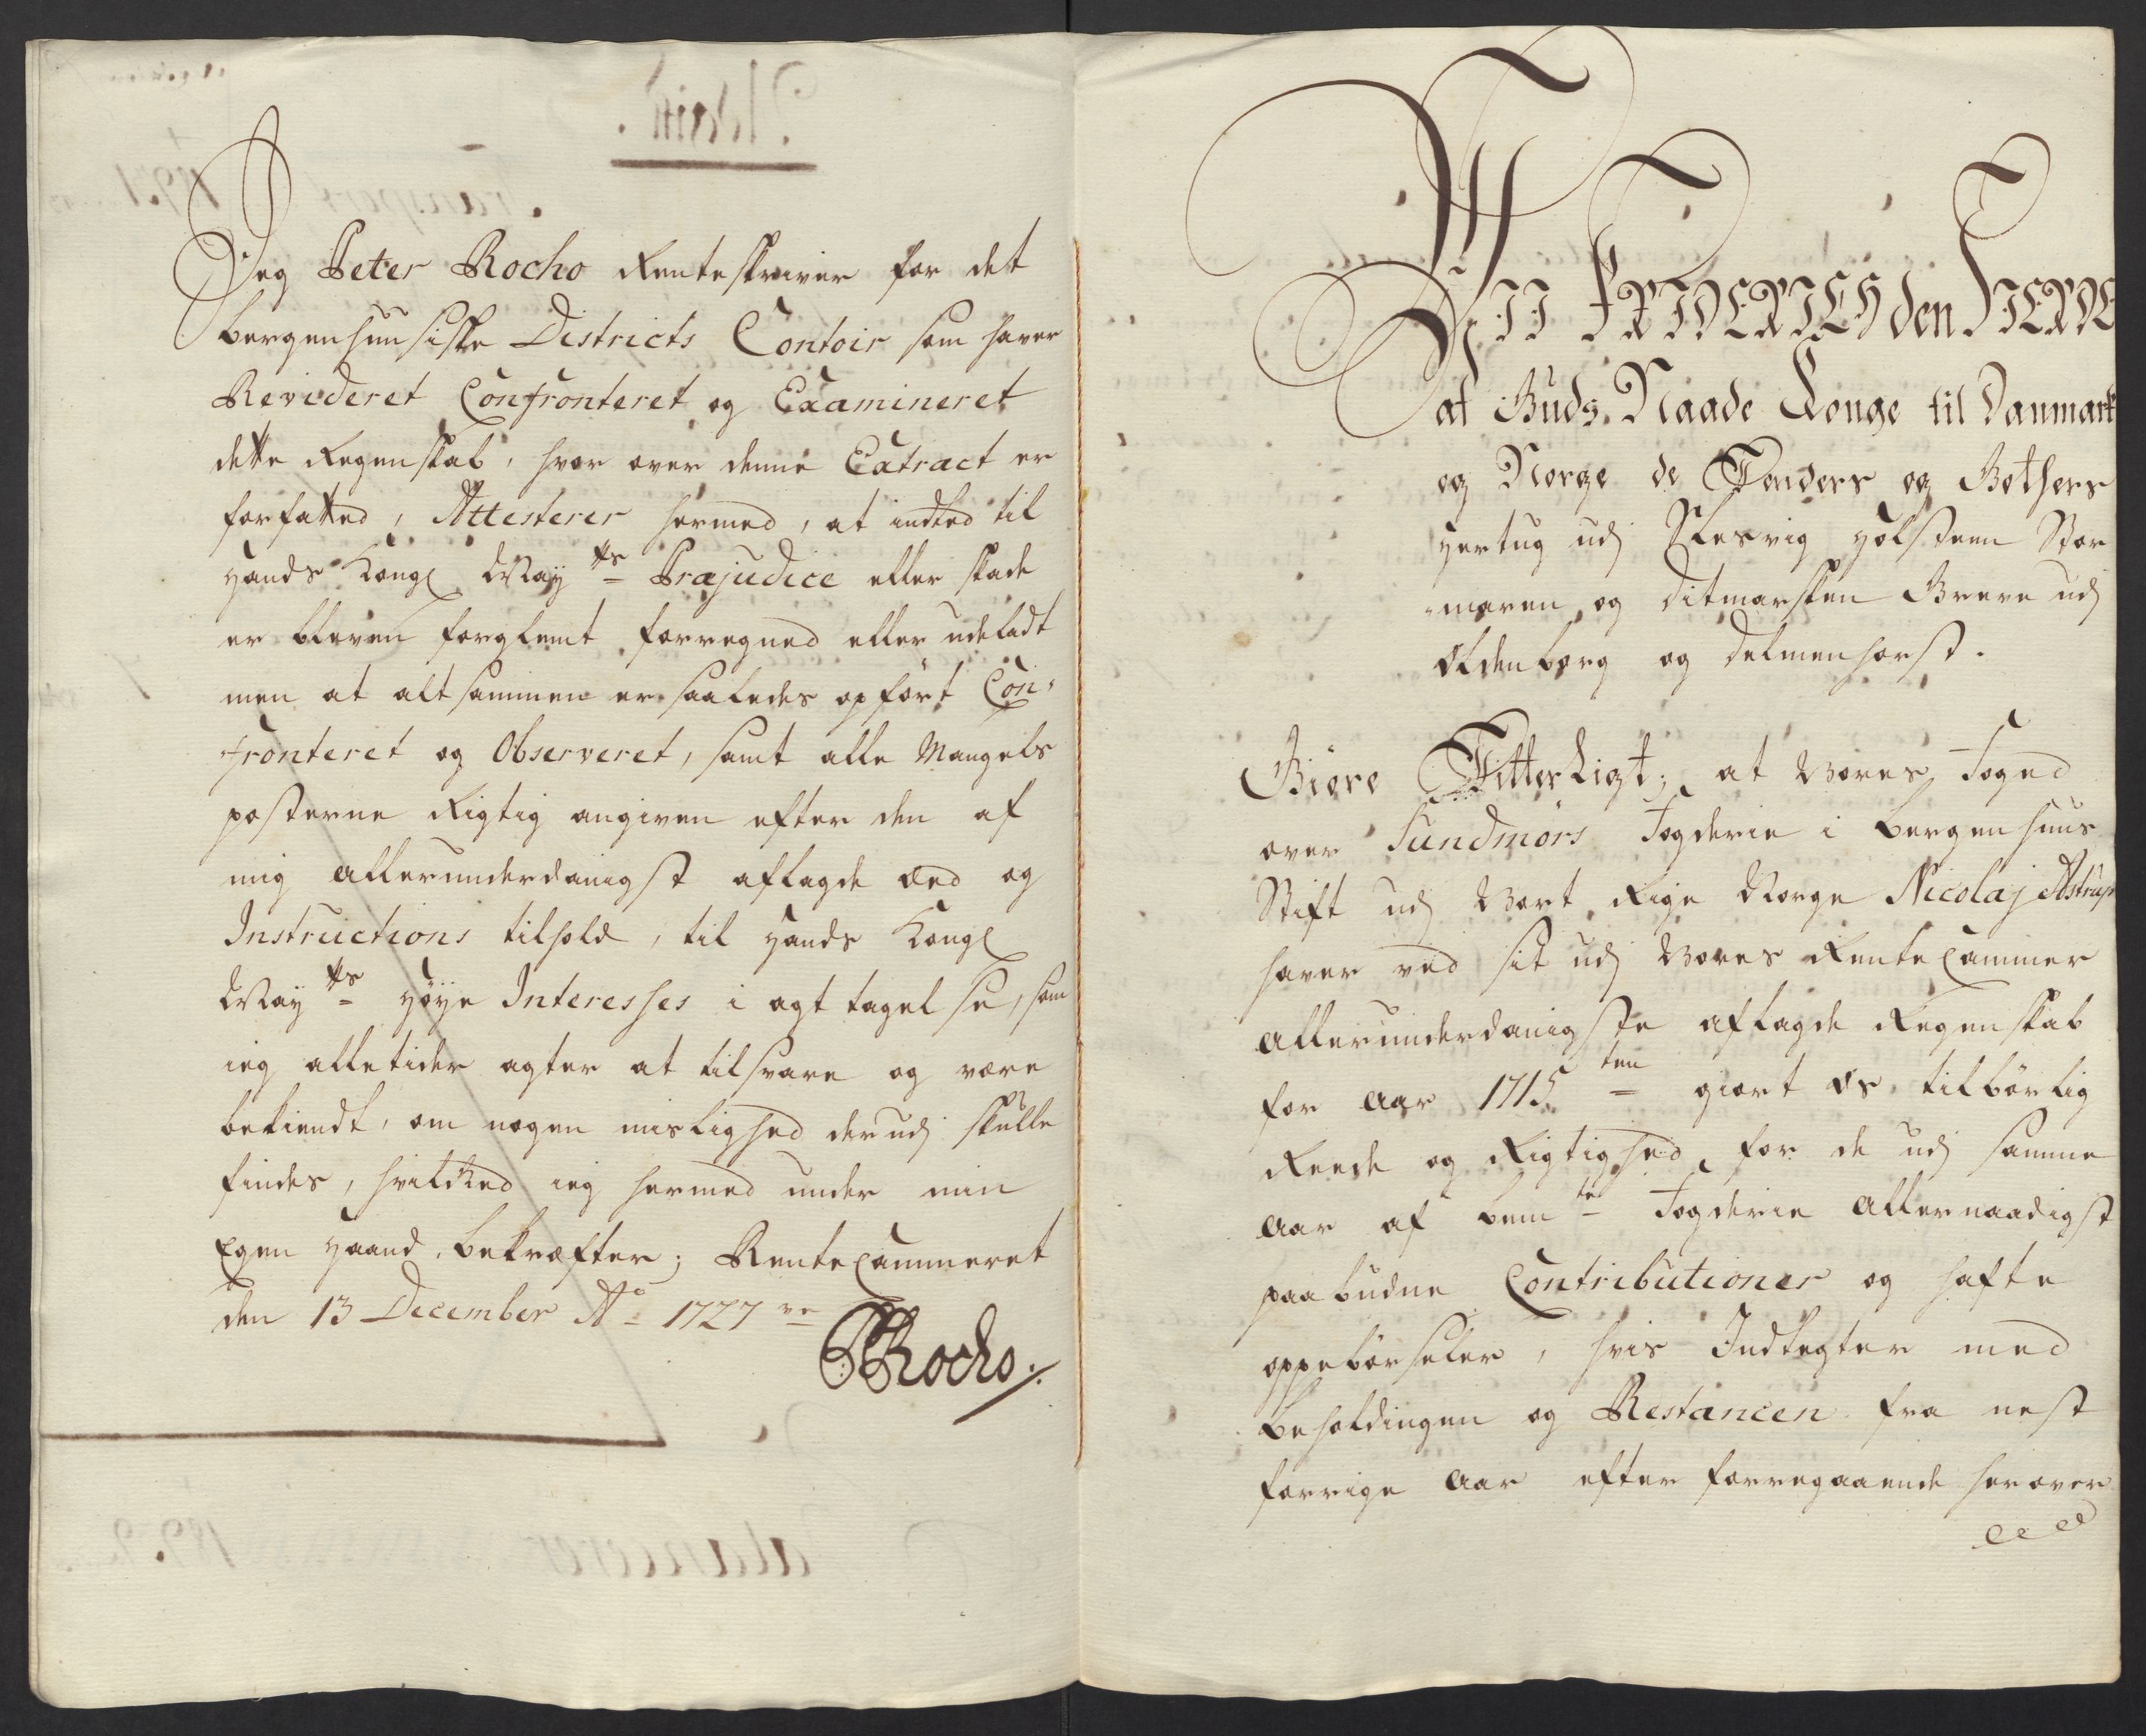 Jeg Peter Rocho Renteskriver for det
bergenhuusiske Districts Contoir som haver
Revideret Confronteret og Examineret
dette Regenskab, hvor over denne Extract er
forfatted, Attesterer hermed, at indted til
Hands Kongl May<sup>ts</sup> Præjudice eller skade
er bleven forglemt forregned eller udeladt
men at altsammen er saaledes opført Con-
fronteret og Observeret, samt alle Mangels
posterne Rigtig angiven efter den af
mig allerunderdanigst aflagde Eed og
Instructions tilhold, til Hands Kongl
May<sup>ts</sup> Høye Interesses i agt tagelse, som
ieg alletider agter at tilsvare og være
bekiendt, om nogen mislighed der udj skulle
findes, hvilcked ieg hermed under min
Egen Haand, bekræfter; RenteCammeret
den 13 December A<sup>o</sup> 1727
PRocho
WII FRIDERICH den FIERDE
af Guds Naade Konge til Danmark
og Norge de Wenders og Gothers
Hertug udj Slesvig Holsteen Stor
maren og Ditmarsken Greve udj
Oldenborg og Delmenhorst.
Giöre Witterligt; at Vores Foged
over Sundmörs Fogderie i Bergenhuus
Stift udj Vort Rige Norge Nicolaj Astrup
haver ved sit udj Vores RenteCammer
allerunderdanigste aflagde Regenskab
for Aar 1715<sup>ten</sup> giort Os tilbørlig
Reede og Rigtighed for de udj samme
Aar af bem<sup>te</sup> Fogderie allernaadigst
paabudne Contributioner og hafte
oppebørseler, hvis Indtegter med
beholdingen og Restancen fra nest
forrige Aar efter forregaaende herover